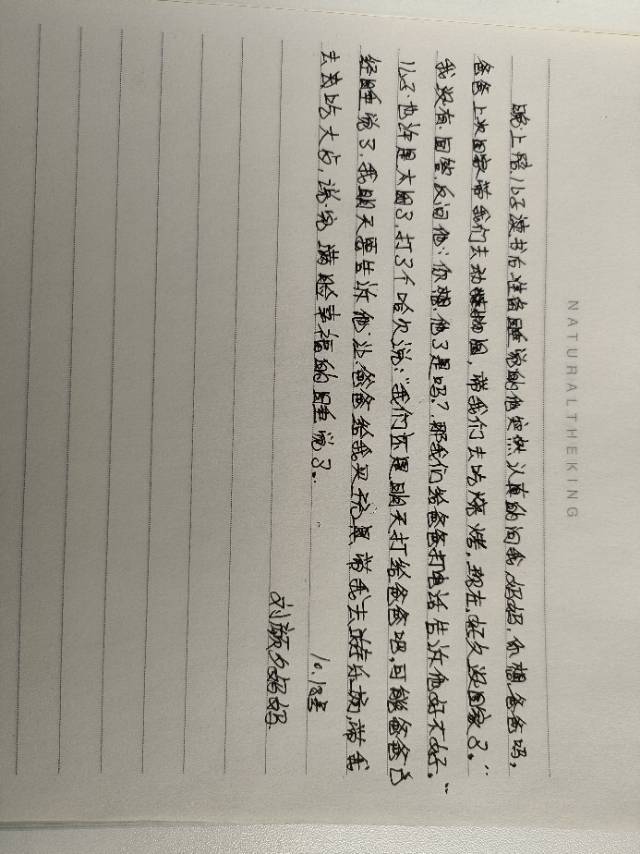 NATURALTHEKING
晚上陪儿子读书后准备睡觉的他突然认真的问我妈妈,你想爸爸吗,
爸爸上次回家带我们去动物园,带我们去吃烧烤,现在好久没回家了。"
我没有回答,反问他:你想他了是吗?那我们给爸爸打电话告诉他好不好。"
儿子也许是太困了,打了个哈欠说:"我们还是明天打给爸爸吧,可能爸爸已
经睡觉了,我明天要告诉他让爸爸给我买玩具带我去游乐场,带我
去去吃大 说完满脸幸福的睡觉了。
10.18
刘颜夕妈妈